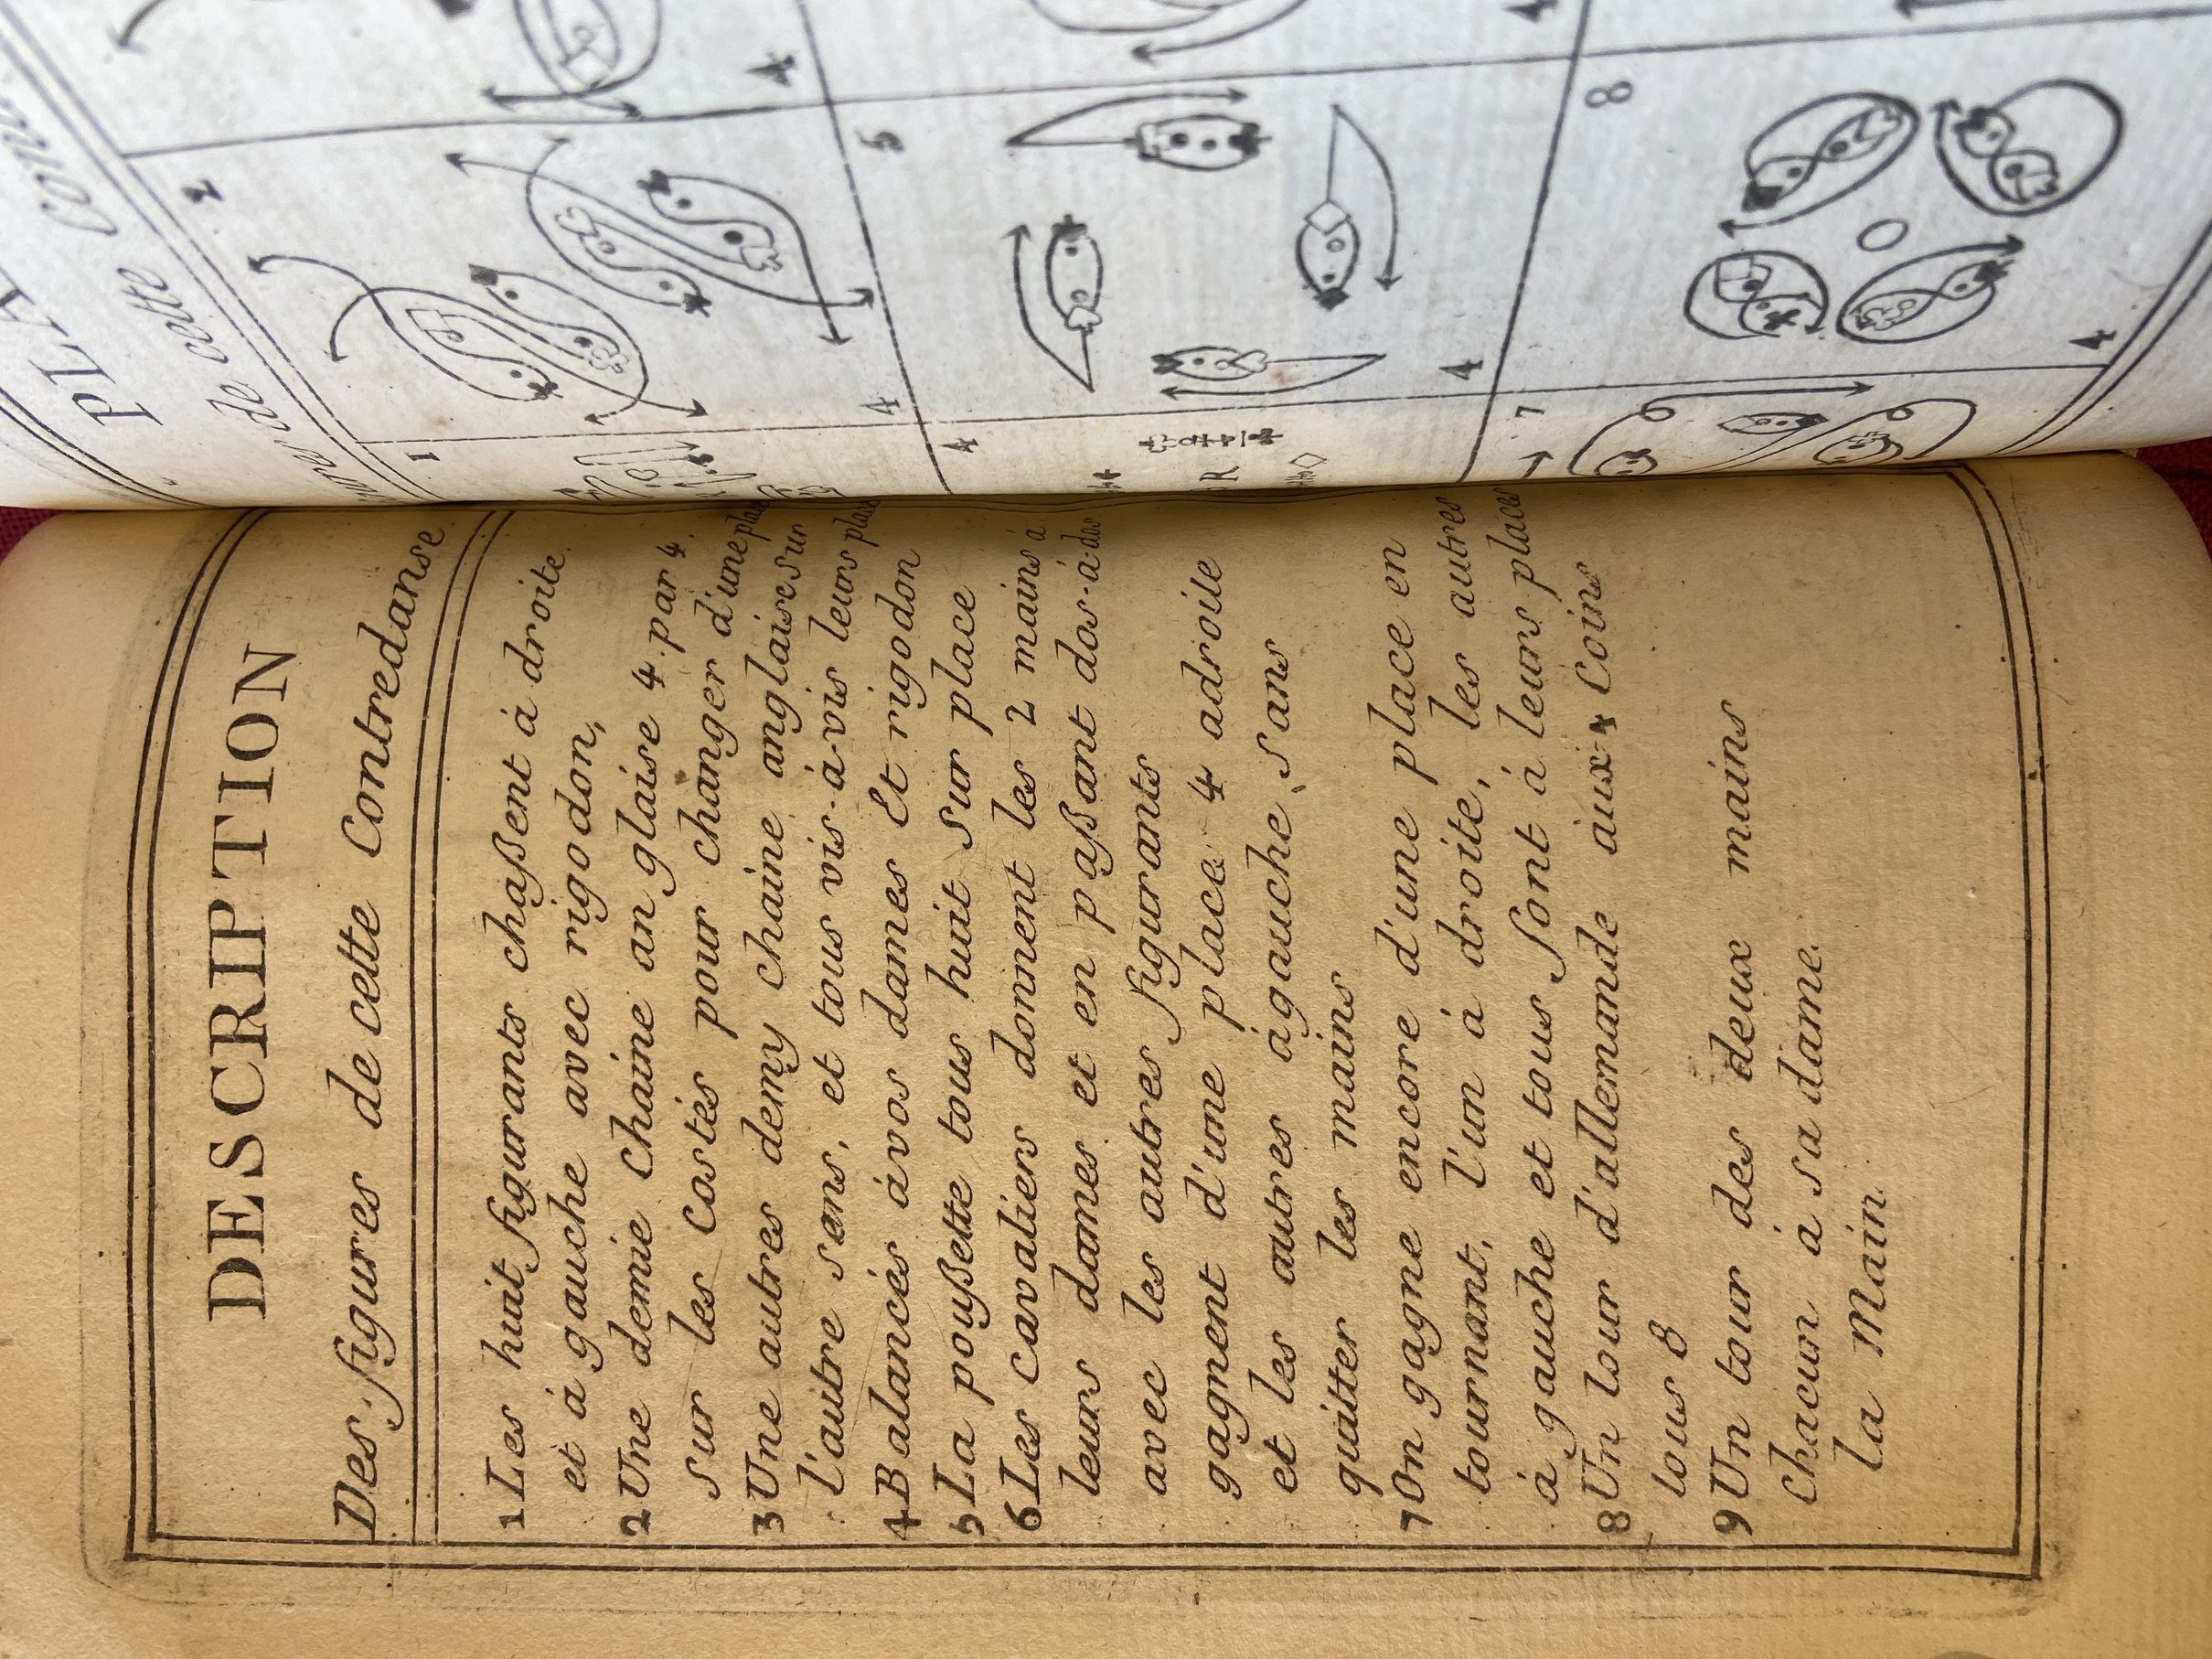 DESCRIPTION
Des figures de cette Contredanse
1 Les huit figurants chaßent à droite
et à gauche avec rigodon,
2 Une demie chaine anglaise 4 par 4.
sur les costés pour changer d'une place
3 Une autres demy chaine anglaise sur
l'autre sens, et tous vis-à-vis leurs places
4 Balancés à vos dames Et rigodon
5 La poußette tous huit sur place
6 Les cavaliers donnent les 2 mains à
leurs dames et en paßant dos-à-dos
avec les autres figurants
gagnent d'une place 4 adroite
et les autres àgauche sans
quitter les mains
7 On gagne encore d'une place en
tournant, l'un à droite, les autres
à gauche et tous sont à leurs places
8 Un tour d'allemande aux 4 Coins
tous 8
9 Un tour des deux mains
Chacun à sa dame.
la Main
PLA
de cette Contr
1
2
4
4
4
5
4
4
R
7
8
4